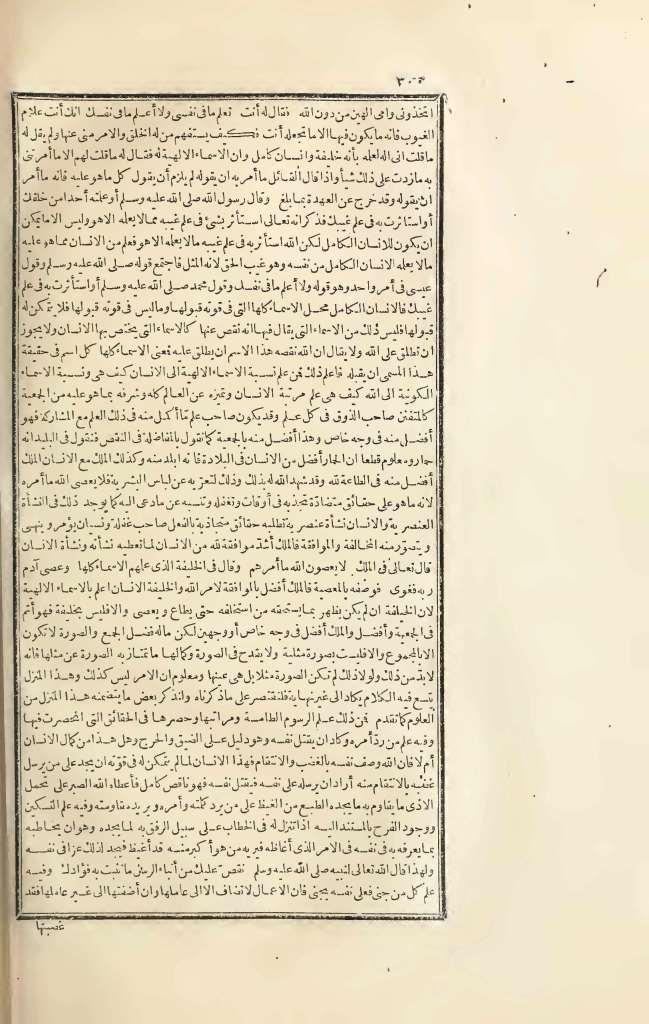 ٣٠٣
اتخذوني وأمي الهين من دون الله فقال له أنت تعلم ما في نفسي ولا أعلم ما في نفسك انك أنت علام
الغيوب فانه ما يكون فيها الا ما تجعله أنت فكيف يستفهم من له الخلق والامر مني عنها ولم يقل له
ما قلت اني اله لعلمه بأنه خليفة وانسان كامل وان الاسماء الالهية له فقال له ما قلت لهم الا ما أمرتني
به ما زدت على ذلك شيأ واذا قال القائل ما أمر به ان يقوله لم يلزم أن يقول كل ما هو عليه فانه ما أمر
ان يقوله وقد خرج عن العهدة بما بلغ وقال رسول الله صلى الله عليه وسلم أو علمته أحدا من خلقك
أو استأثرت به في علم غيبك فذكر انه تعالى استأثر بشئ في علم غيبه مما لا يعلمه الا هو وليس الا ما يمكن
ان يكون للانسان الكامل لكن الله استأثر به في علم غيبه ما لا يعلمه الا هو فعلم من الانسان مما هو عليه
ما لا يعلمه الانسان الكامل من نفسه وهو غيب الحق لانه المثل فاجتمع قوله صلى الله عليه وسلم وقول
عيسى في أمر واحد وهو قوله ولا أعلم ما في نفسك وقول محمد صلى الله عليه وسلم أو استأثرت به في علم
غيبك فالانسان الكامل محل الاسماء كلها التي في قوته قبولها وما ليس في قوته قبولها فلا يتمكن له
قبولها فليس ذلك من الاسماء التي يقال فيها انه نقص عنها كالاسماء التي يختص بها الانسان ولا يجوز
ان تطلق على الله ولا يقال ان الله نقصه هذا الاسم ان يطلق عليه فمعنى الاسماء كلها كل اسم في حقيقة
هذا المسمى ان يقبله فاعلم ذلك فمن علم نسبة الاسماء الالهية الى الانسان كيف هي ونسبة الاسماء
الكونية الى الله كيف هي علم مرتبة الانسان وتميزه عن العالم كله وشرفه بما هو عليه من الجمعية
كالمتفنن صاحب الذوق في كل علم وقد يكون صاحب علم تما أكمل منه في ذلك العلم مع المشاركة فهو
أفضل منه في وجه خاص وهذا أفضل منه بالجمعية كما نقول بالمفاضلة في النقص فنقول في البليد انه
حمار ومعلوم قطعا ان الحمار أفضل من الانسان في البلادة فانه ابلد منه وكذلك الملك مع الانسان الملك
أفضل منه في الطاعة لله وقد شهد الله له بذلك وذلك لتعريه عن لباس البشرية فلا يعصى الله ما أمره
لانه ما هو على حقائق متضادة تجذبه في أوقات وتغفله وتنسيه عن ما دعى اليه كما يوجد ذلك في النشأة
العنصرية والانسان نشأة عنصرية تطلبه حقائق متجاذبة بالفعل صاحب غفلة ونسيان يؤمر وينهى
ويتصور منه المخالفة والموافقة فالملك أشد موافقة لله من الانسان لما تعطيه نشأته ونشأة الانسان
قال تعالى في الملك لا يعصون الله ما أمرهم وقال في الخليفة الذي علمهم الاسماء كلها وعصى آدم
ربه فغوى فوصفه بالمعصية فالملك أفضل بالموافقة لامر الله والخليفة الانسان اعلم بالاسماء الالهية
لان الخليفة ان لم يكن يظهر بما يستحقه من استخلفه حتى يطاع ويعصى والا فليس بخليفة فهو أتم
في الجمعية وأفضل والملك أفضل في وجه خاص أو وجهين لكن ماله فضل الجمع والصورة لا تكون
الا بالمجموع والا فليست بصورة مثلية ولا يقدح في الصورة وكمالها ما تمتاز به الصورة عن مثلها فانه
لا بد من ذلك ولولا ذلك لم تكن الصورة مثلا بل هي عينها ومعلوم ان الامر ليس كذلك وهذا المنزل
يتسع فيه الكلام يكاد الى غير نهاية فلنقتصر على ما ذكرناه ولنذكر بعض ما يتضمنه هذا المنزل من
العلوم كما تقدم فمن ذلك علم الرسوم الطامسة ومراتبها وحصرها في الحقائق التي انحصرت فيها
وفيه علم من رد أمره وكاد ان يقتل نفسه وهو دليل على الضيق والحرج وهل هذا من كمال الانسان
أم لا فان الله وصف نفسه بالغضب والانتقام فهذا الانسان لما لم يتمكن له في قوته ان يجد على من يرسل
غضبه بالانتقام منه أراد ان يرسله على نفسه فيقتل نفسه فهو ناقص كامل فأعطاه الله الصبر على تحمل
الاذى ما يقاوم به ما يجده الطبع من الغيظ على من يرد كلمته وأمره ويريد مقاومته وفيه علم التسكين
ووجود الفرح بالمستند اليه اذا تنزل له في الخطاب على سبيل الرفق به لما يجده وهو ان يخاطبه
بما يعرفه به في نفسه في الامر الذي أغاظه فيريه من هو أكبر منه قد أغيظ فيجد لذلك عزا في نفسه
ولهذا قال الله تعالى لنبيه صلى الله عليه وسلم نقص عليك من أنباء الرسل ما نثبت به فؤادك وفيه
علم كل من جنى فعلى نفسه يجني فان الاعمال لا تضاف الا الى عاملها وان أضفتها الى غير عاملها فقد
غصبتها